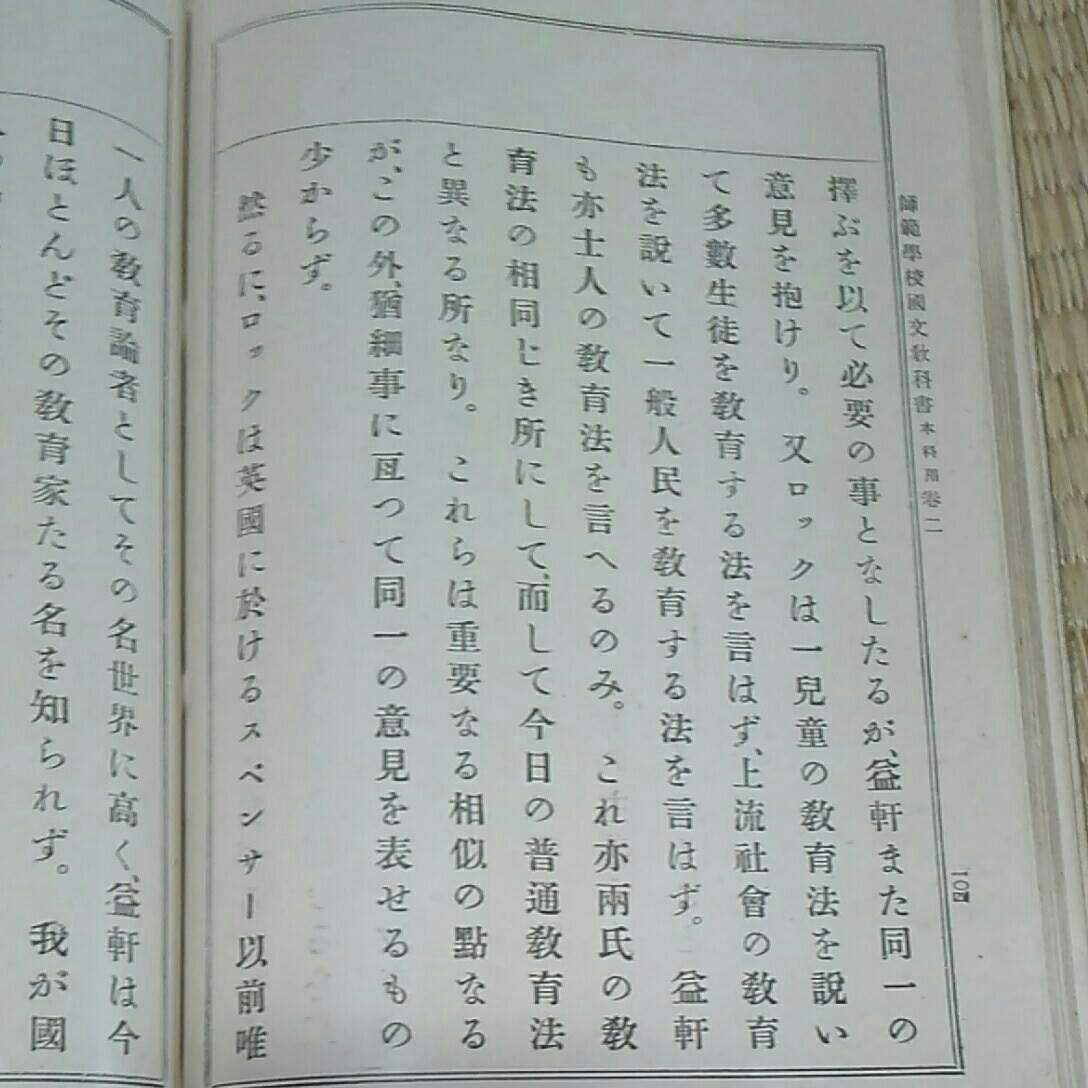 師範學校國文敎科書本科用卷二
擇ぶを以て必要の事となしたるが、益軒また同一の
意見を抱けり。又ロックは一兒童の敎育法を説い
て多數生徒を敎育する法を言はず、上流社會の敎育
法を説いて一般人民を敎育する法を言はず。益軒
も亦士人の敎育法を言へるのみ。これ亦兩氏の敎
育法の相同じき所にして、而して今日の普通敎育法
と異なる所なり。これらは重要なる相似の點なる
が、この外、猶細事に亙つて同一の意見を表せるもの
少からず。
然るに、ロックは英國に於けるスペンサー以前唯
一人の敎育論者としてその名世界に高く、益軒は今
日ほとんどその敎育家たる名を知られず。我が國